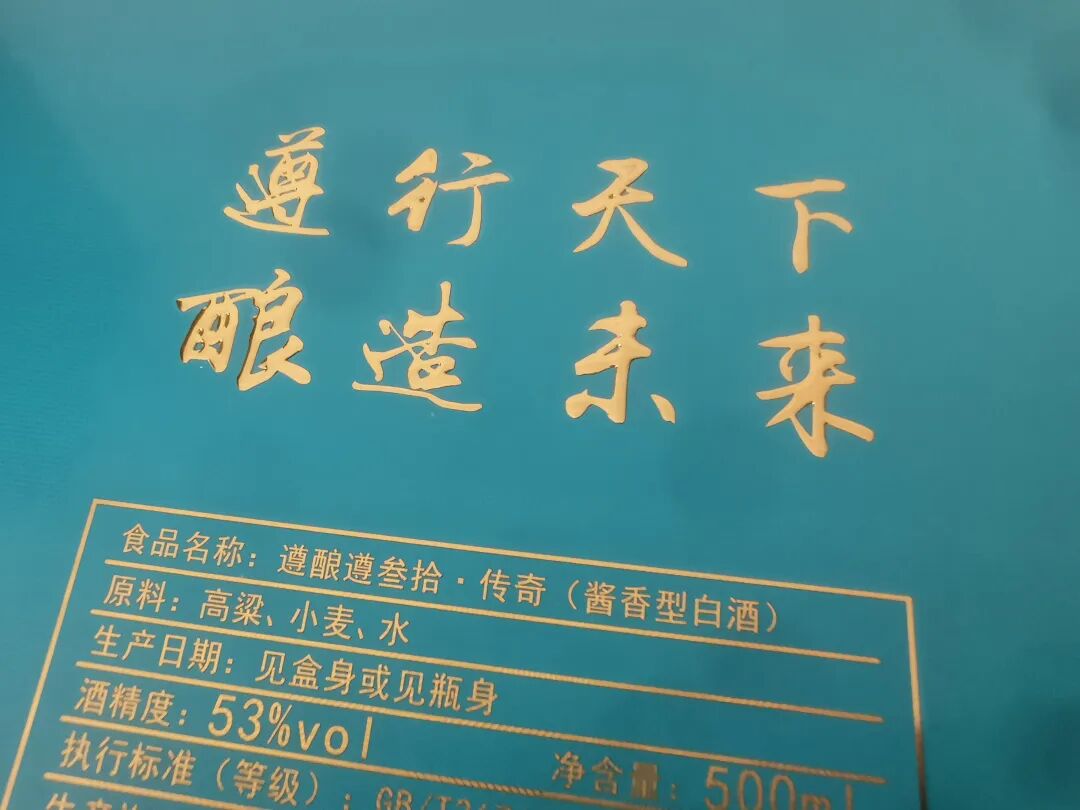 遵行天下
酿造未来
食品名称：遵酿遵叁拾·传奇（酱香型白酒）
原料：高粱、小麦、水
生产日期：见盒身或见瓶身
酒精度：53%vol 净含量：500ml
执行标准（等级）：GB/T